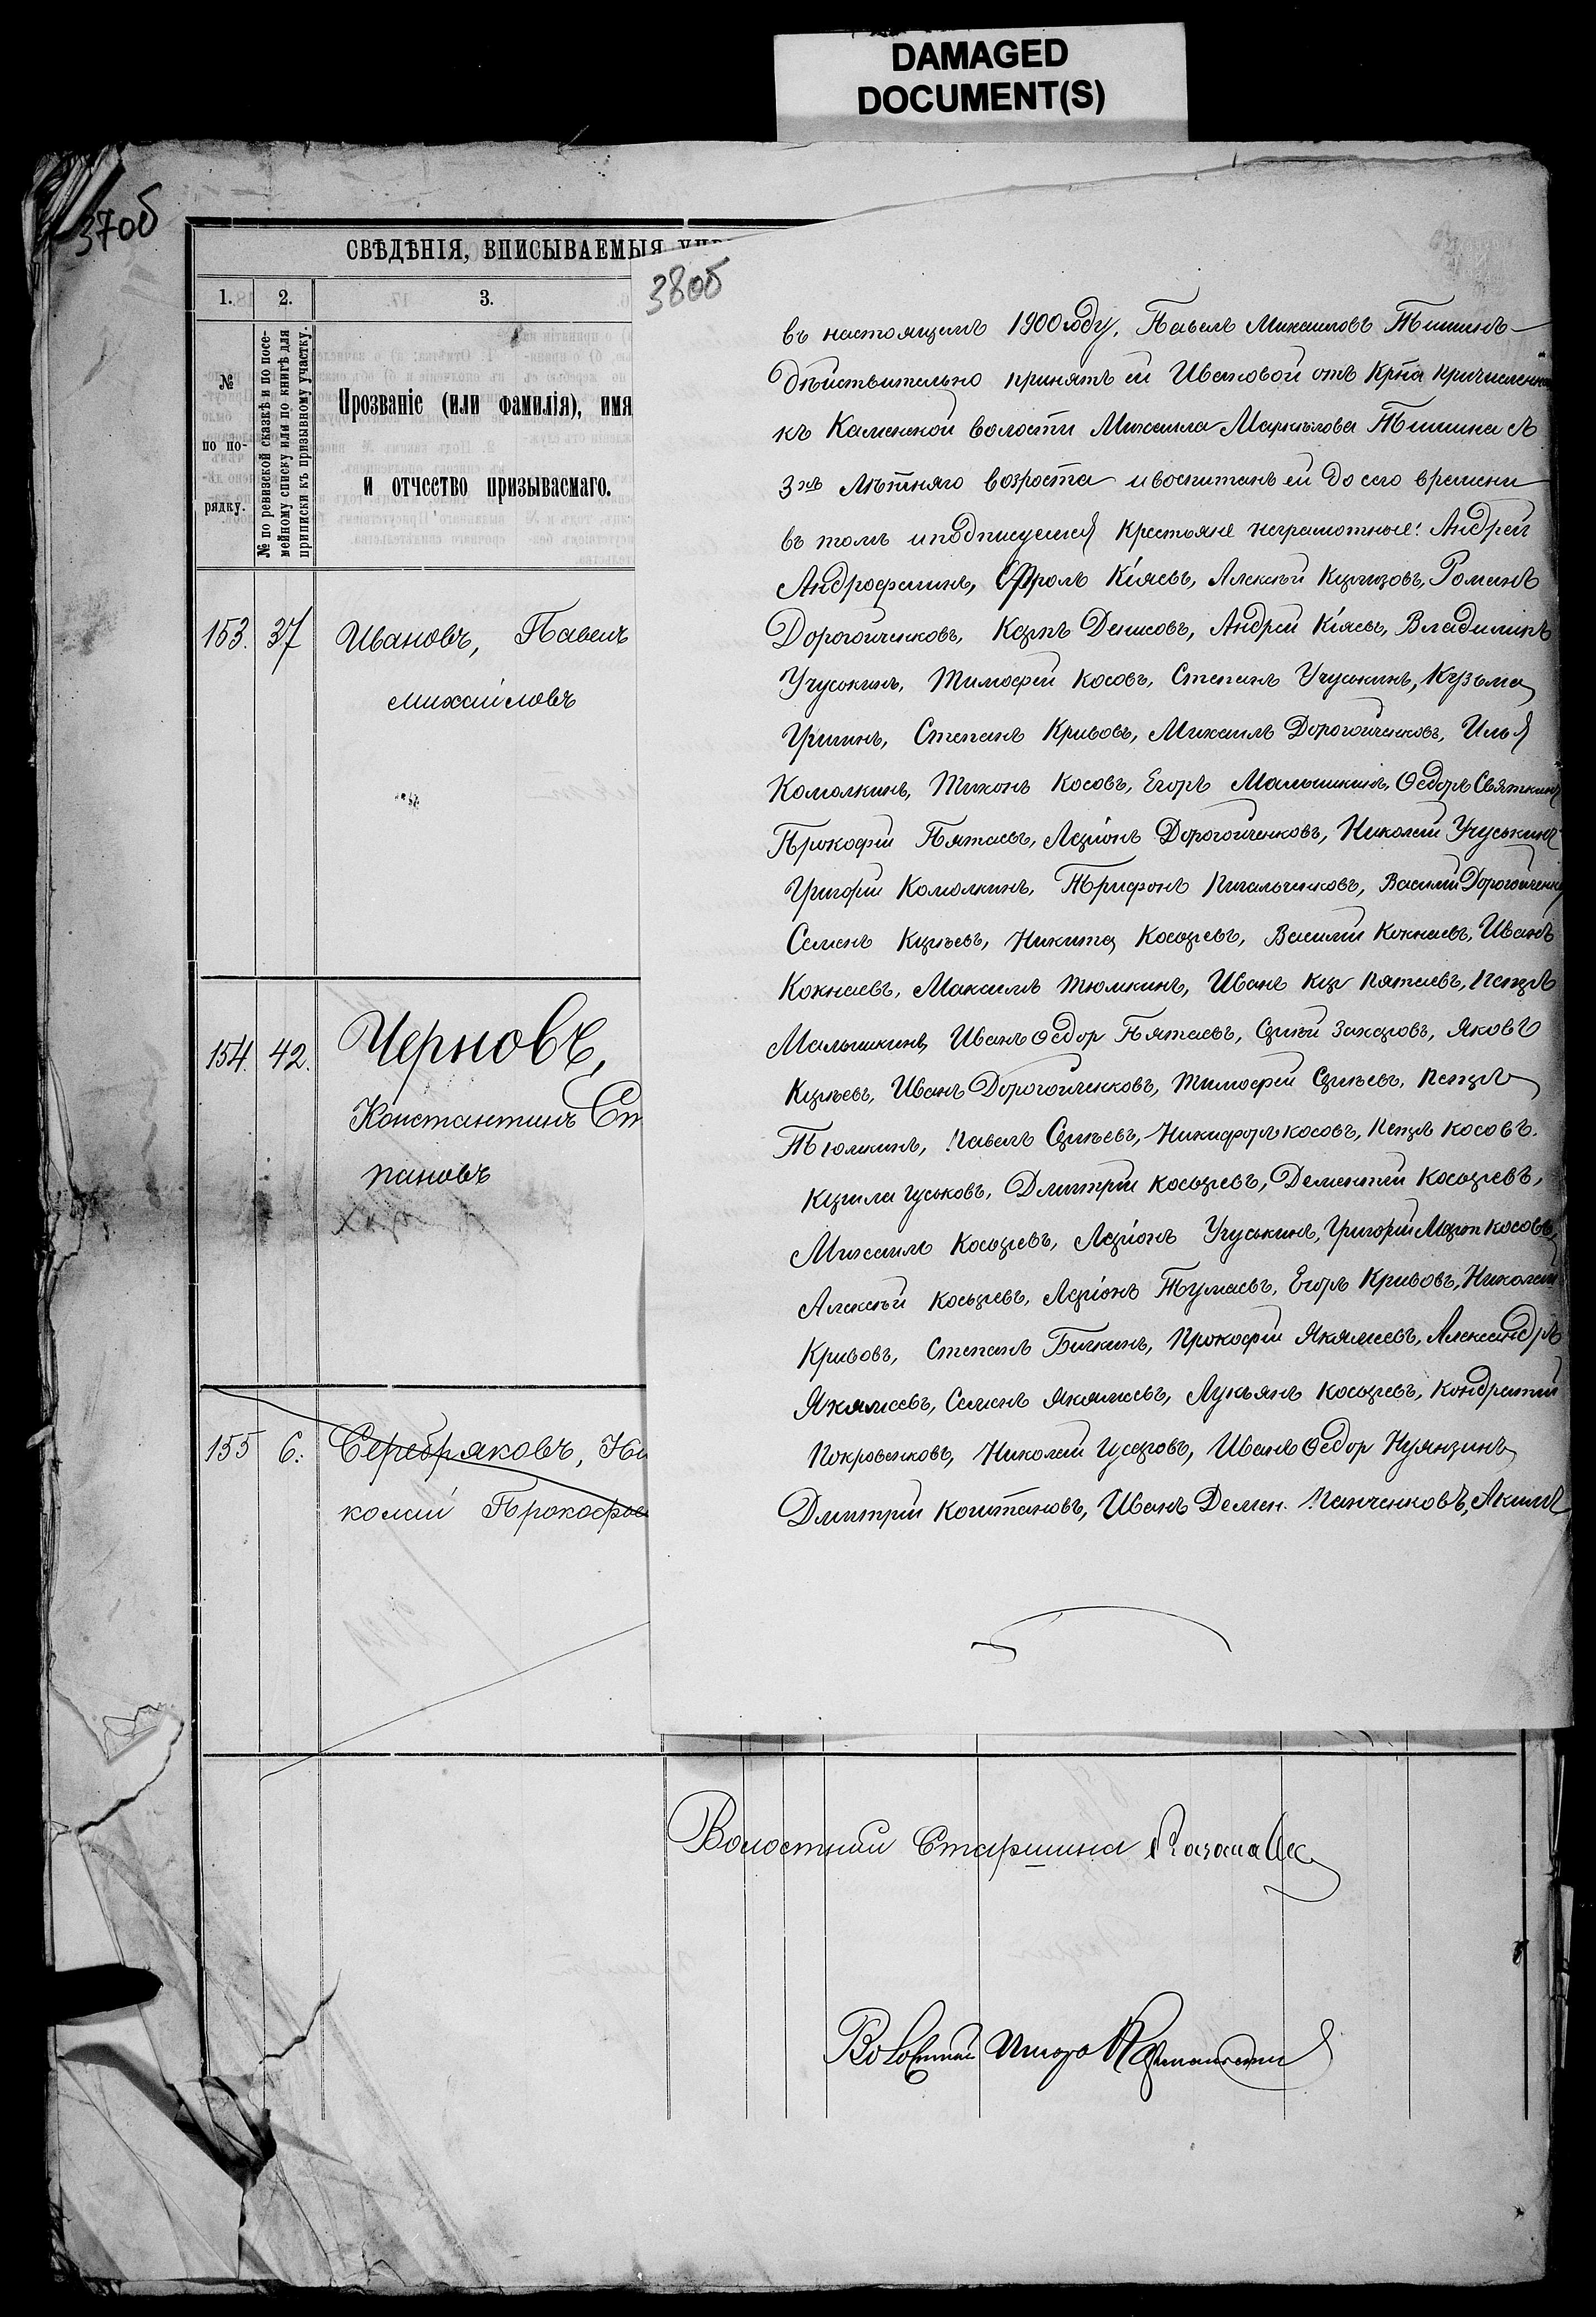 DAMAGED
DOCUMENT(S)
37об
СВѢДѢНІЯ, ВПИСЫВАЕМЫЯ
1. 2. 3.
№ по порядку.
№ по ревизской сказкѣ и по посемейному списку или по книгѣ для приписки къ призывному участку.
Прозваніе (или фамилія), имя
и отчество призываемаго.
153. 37 Ивановъ, Павелъ
Михайловъ
154. 42. Черновъ,
Константинъ Сте
пановъ
155 6. Серебряковъ, Ни
колай Прокофье
38об
въ настоящемъ 1900 году, Павелъ Михаиловъ Тишинъ
дѣйствительно принятъ ей Ивановой отъ Крна причисленна
къ Каменской волости Михаила Маркелова Тишина съ
3хъ лѣтняго возроста и воспитанъ ей до сего времени
въ томъ и подписуемся Крестьяне неграмотные: Андрей
Андрофагинъ, Фролъ Кіяевъ, Алексѣй Романъ
Дорогойченковъ, Карпъ Денисовъ, Андрей Кіяевъ, Владиміръ
Учуськинъ, Тимофей Косовъ, Степанъ Учуськинъ, Кузьма
Степанъ Кривовъ, Михаилъ Дорогойченковъ, Илья
Комолкинъ, Тихонъ Косовъ, Егоръ Малышкинъ, Ѳедоръ Святкинъ
Прокофій Пятаевъ, Ларіонъ Дорогойченковъ, Николай Учуськинъ
Григорій Комолкинъ, Трифонъ Пигальченковъ, Василій Дорогойченко
Семенъ Киреевъ, Никита Косыревъ, Василій Кокнаевъ, Иванъ
Кокнаевъ, Максимъ Тюмкинъ, Иванъ Кир Пятаевъ, Петръ
Малышкинъ, Иванъ Ѳедор Пятаевъ, Сергѣй Захаровъ, Яковъ
Киреевъ, Иванъ Дорогойченковъ, Тимофей Сергѣевъ, Петръ
Тюмкинъ, Павелъ Сергѣевъ, Никифоръ Косовъ, Петръ Косовъ.
Кирила Гуськовъ, Дмитрій Косыревъ, Дементій Косыревъ,
Михаилъ Косыревъ, Ларіонъ Учуськинъ, Григорій Март Косовъ,
Алексѣй Косыревъ, Ларіонъ Тумаевъ, Егоръ Кривовъ, Николай
Кривовъ, Степанъ Бичкинъ, Прокофій Якямсевъ, Александръ
Якямсевъ, Семенъ Якямсевъ, Лукьянъ Косыревъ, Кондратій
Покровенковъ, Николай Гусаровъ, Иванъ Ѳедор Нуянзинъ
Дмитрій Коштановъ, Иванъ Демен. Панченковъ, Акимъ
Волостной Старшина
Волостной Писарь